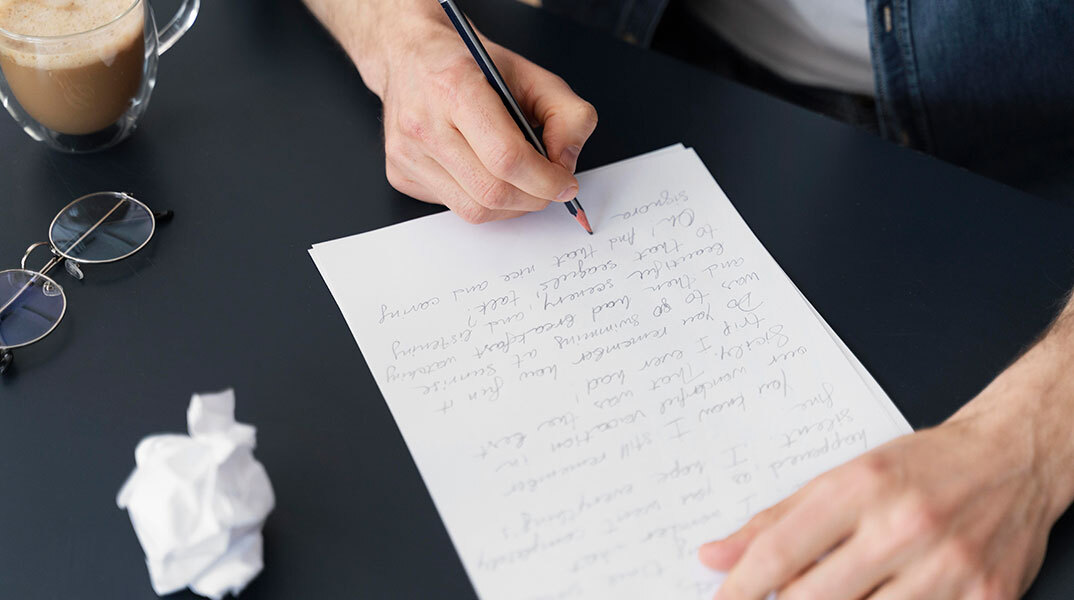 time
I wonder what
happened, as you went completely
silent. I hope everything's
fine.
You know, I still remember
our wonderful vacation in
Sicily. That was the best
trip I ever had!
Do you remember how fun it
was to go swimming at sunrise
and then had breakfast watching
beautiful scenery, and listening
to that seagulls talk?
Oh! And that nice and caring
signora